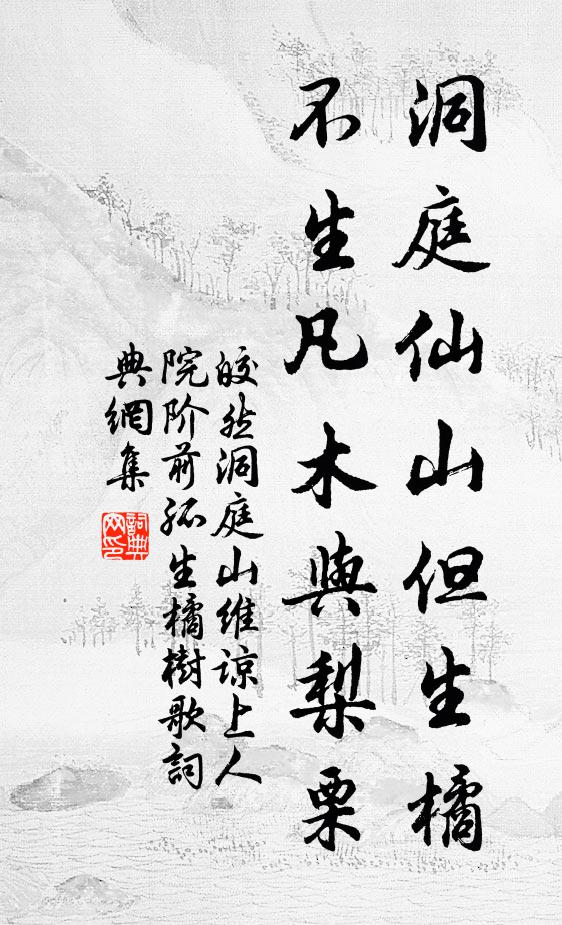 洞庭仙山但生橘
不生凡木與梨栗
皎然洞庭山维谅上人
院阶前孤生橘樹歌詞
典網集
詞典
网印